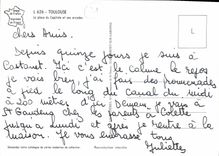 L 426 - TOULOUSE
La place du Capitole et ses arcades.
Chers Amis.
Depuis quinze jours je suis à
Castanet. Ici c'est le calme le repos
je vais bien, j'ai fais des promenades
à pied le long du canal du midi
à 200 mètres d'ici Demain, je vais à
St Gaudens chez les parents à Colette
jusqu'à lundi et après je rentre à la
maison. Je vous embrasse tous
Juliette